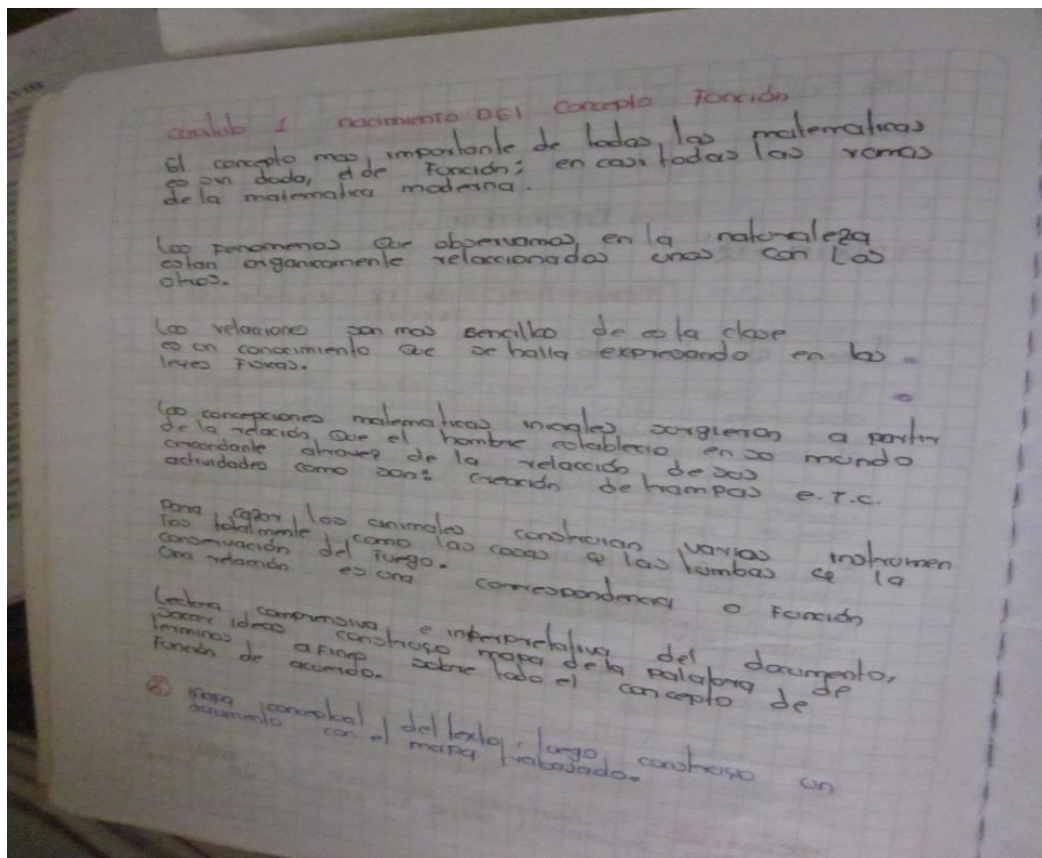 1 nacimiento DEl concepto Función
El concepto mas importante de todas las matematicas
es sin duda, el de Función; en casi todas las ramas
de la matematica moderna.
Los Fenomenos que observamos en la naturaleza
estan organicamente relaccionados unos con Los
otros.
Las relaciones son mas sencillas de esta clase
es un conocimiento que se halla expresando en las
leyes Fisicas.
Las concepciones matematicas iniciales surgieron a partir
de la relación que el hombre establecio en su mundo
circundante atravez de la relacción de sus
actividades como son: creación de trampas e.T.C.
Para cazar los animales construian varios instrumen
Tos totalmente como las casas las tumbas la
conservación del Fuego.
Una relación es una correspondencia o Función
Lectura comprensiva e interpretativa del documento,
sacar ideas construyo mapa de la palabra de
terminos afines sobre todo el concepto de
Función de acuerdo.
mapa conceptual del texto, luego construyo un
documento con el mapa trabajado.